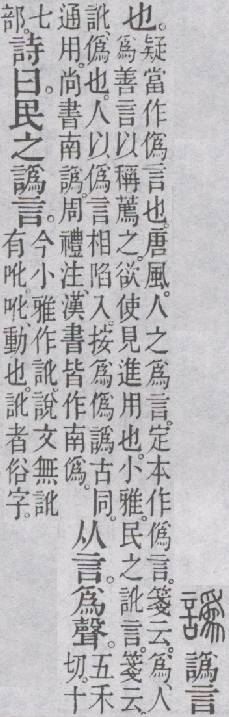 譌 譌言
也。疑當作偽言也。唐風。人之爲言。定本作偽言。箋云。爲、人爲善言以稱薦之。欲使見進用也。小雅。民之訛言。箋云。
訛、偽也。人以偽言相陷入。按爲偽譌古同通用。尚書南譌。周禮注、漢書皆作南偽。从言。爲聲。五禾切。十
七部。詩曰。民之譌言。今小雅作訛。說文無訛有吪。吪動也。訛者俗字。